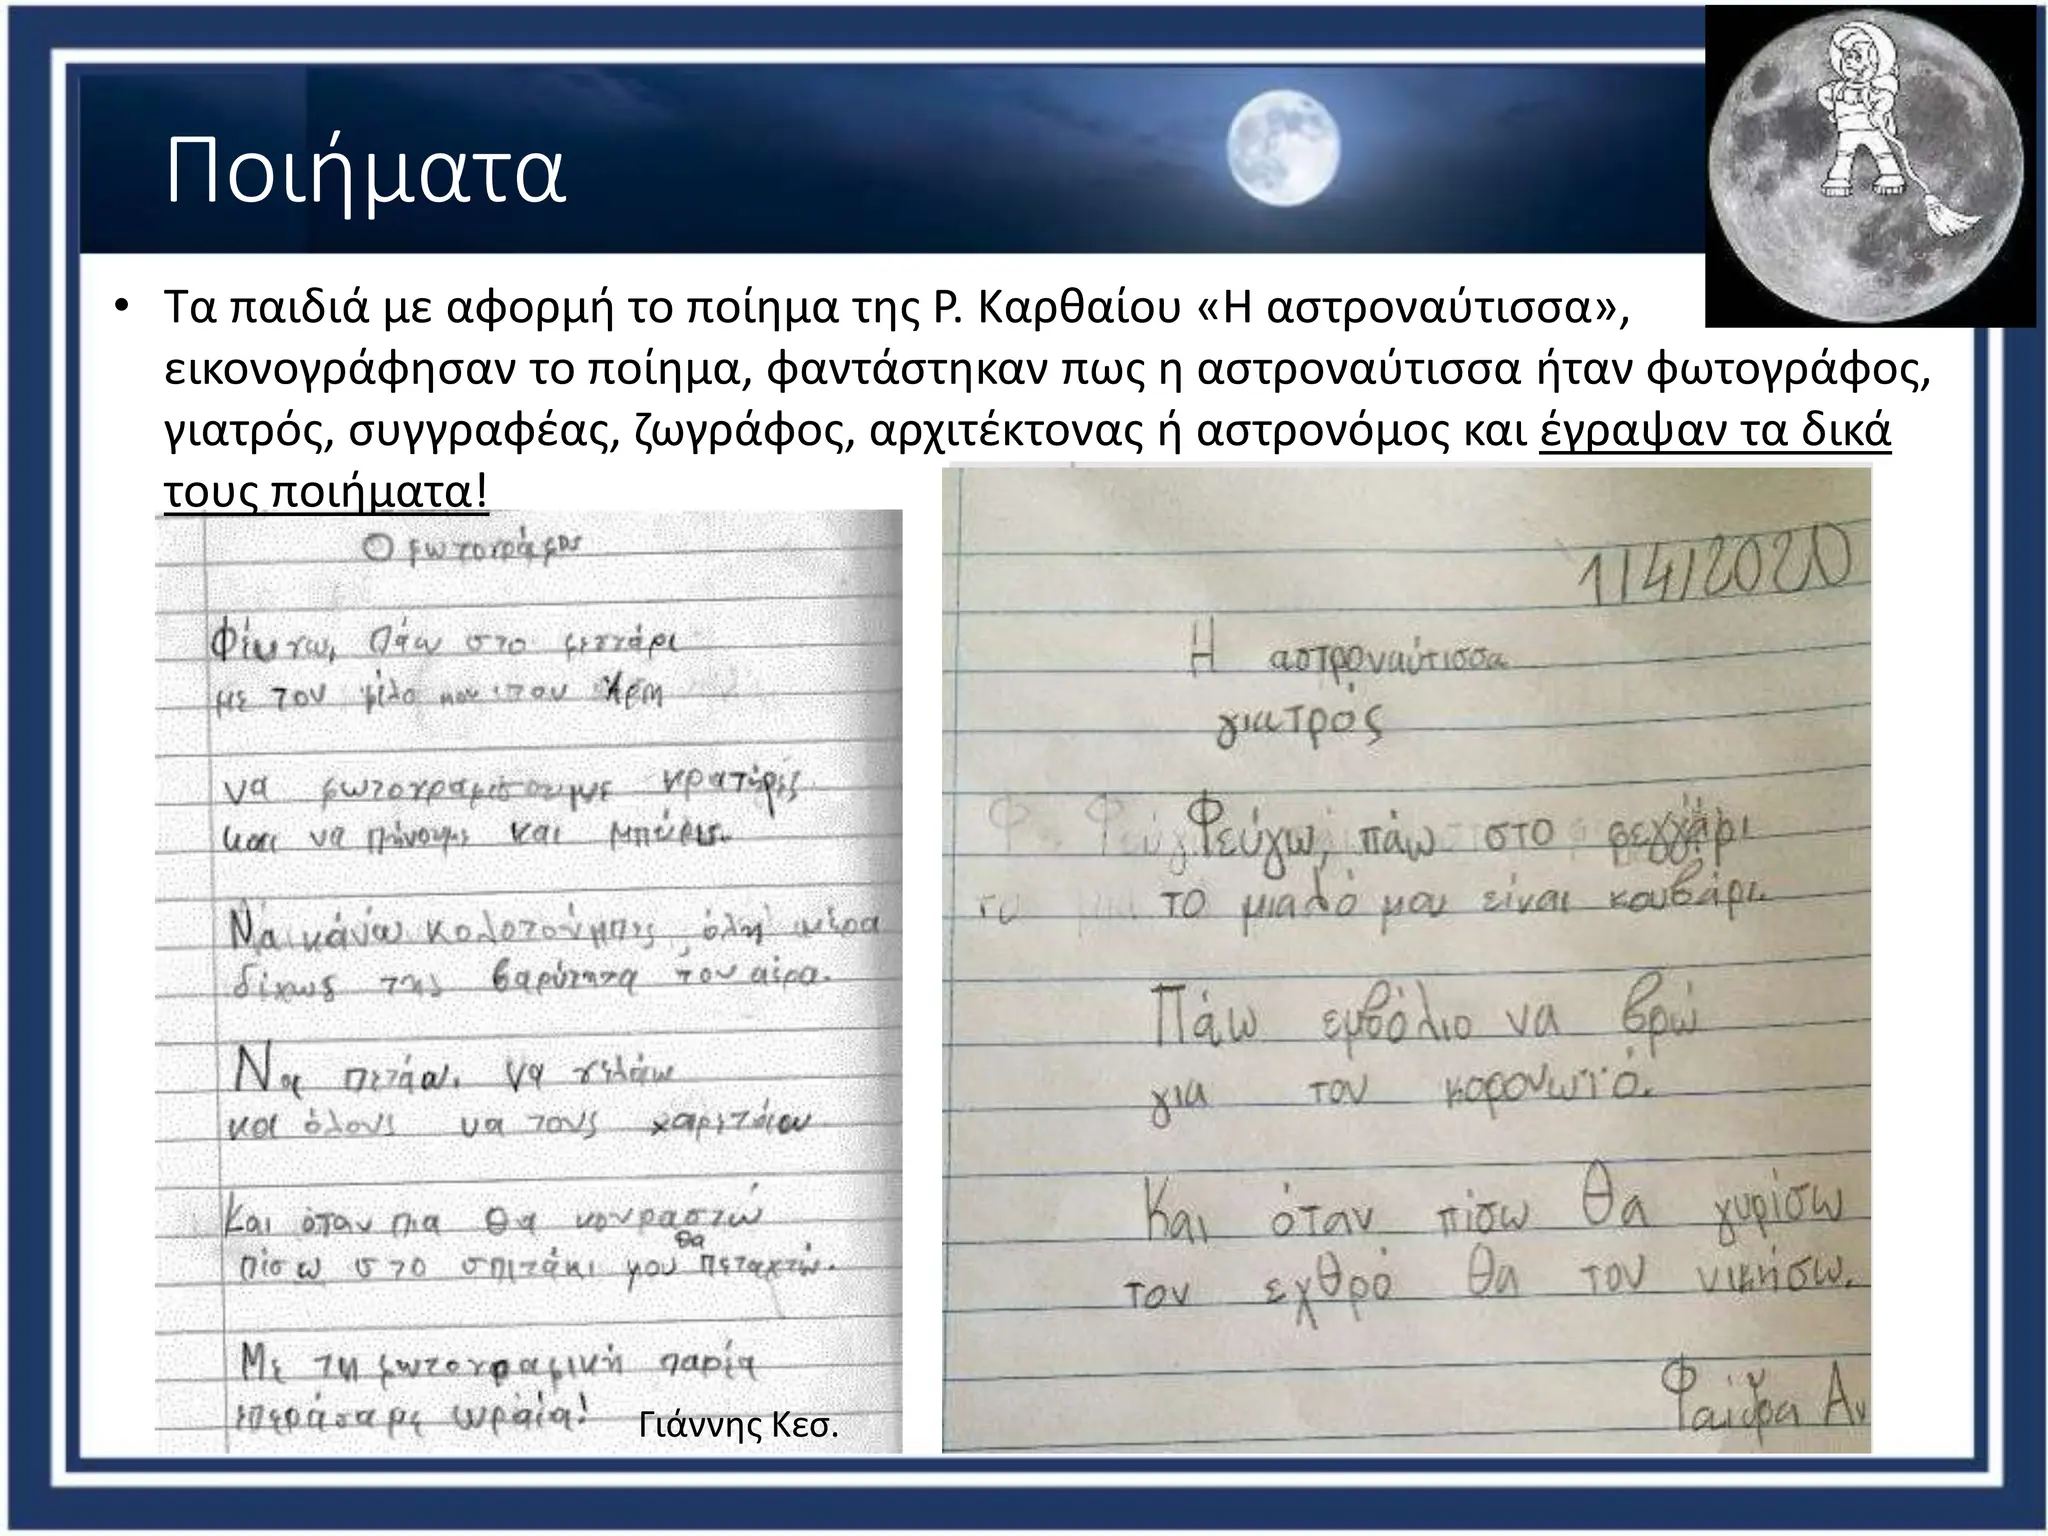 Ποιήματα
• Τα παιδιά με αφορμή το ποίημα της Ρ. Καρθαίου «Η αστροναύτισσα»,
εικονογράφησαν το ποίημα, φαντάστηκαν πως η αστροναύτισσα ήταν φωτογράφος,
γιατρός, συγγραφέας, ζωγράφος, αρχιτέκτονας ή αστρονόμος και έγραψαν τα δικά
τους ποιήματα!
Ο φωτογράφος
Φεύγω, Πάω στο φεγγάρι
με τον φίλο μου τον Άρη
να φωτογραφίσουμε κρατήρες
και να πίνουμε και μπύρες.
Να κάνω κολοτούμπες όλη μέρα
δίχως της βαρύτητα τον αέρα.
Να πετάω, να γελάω
και όλους να τους χαιρετάω
Και όταν πια θα κουραστώ
πίσω στο σπιτάκι μου θα πεταχτώ.
Με τη φωτογραφική παρέα
περάσαμε ωραία!
Γιάννης Κεσ.
1/4/2020
Η αστροναύτισσα
γιατρός
Φεύγω, πάω στο φεγγάρι
το μιαλό μου είναι κουβάρι.
Πάω εμβόλιο να βρώ
για τον κορονωιό.
Και όταν πίσω θα γυρίσω
τον εχθρό θα τον νικήσω.
Φαίδρα Αν